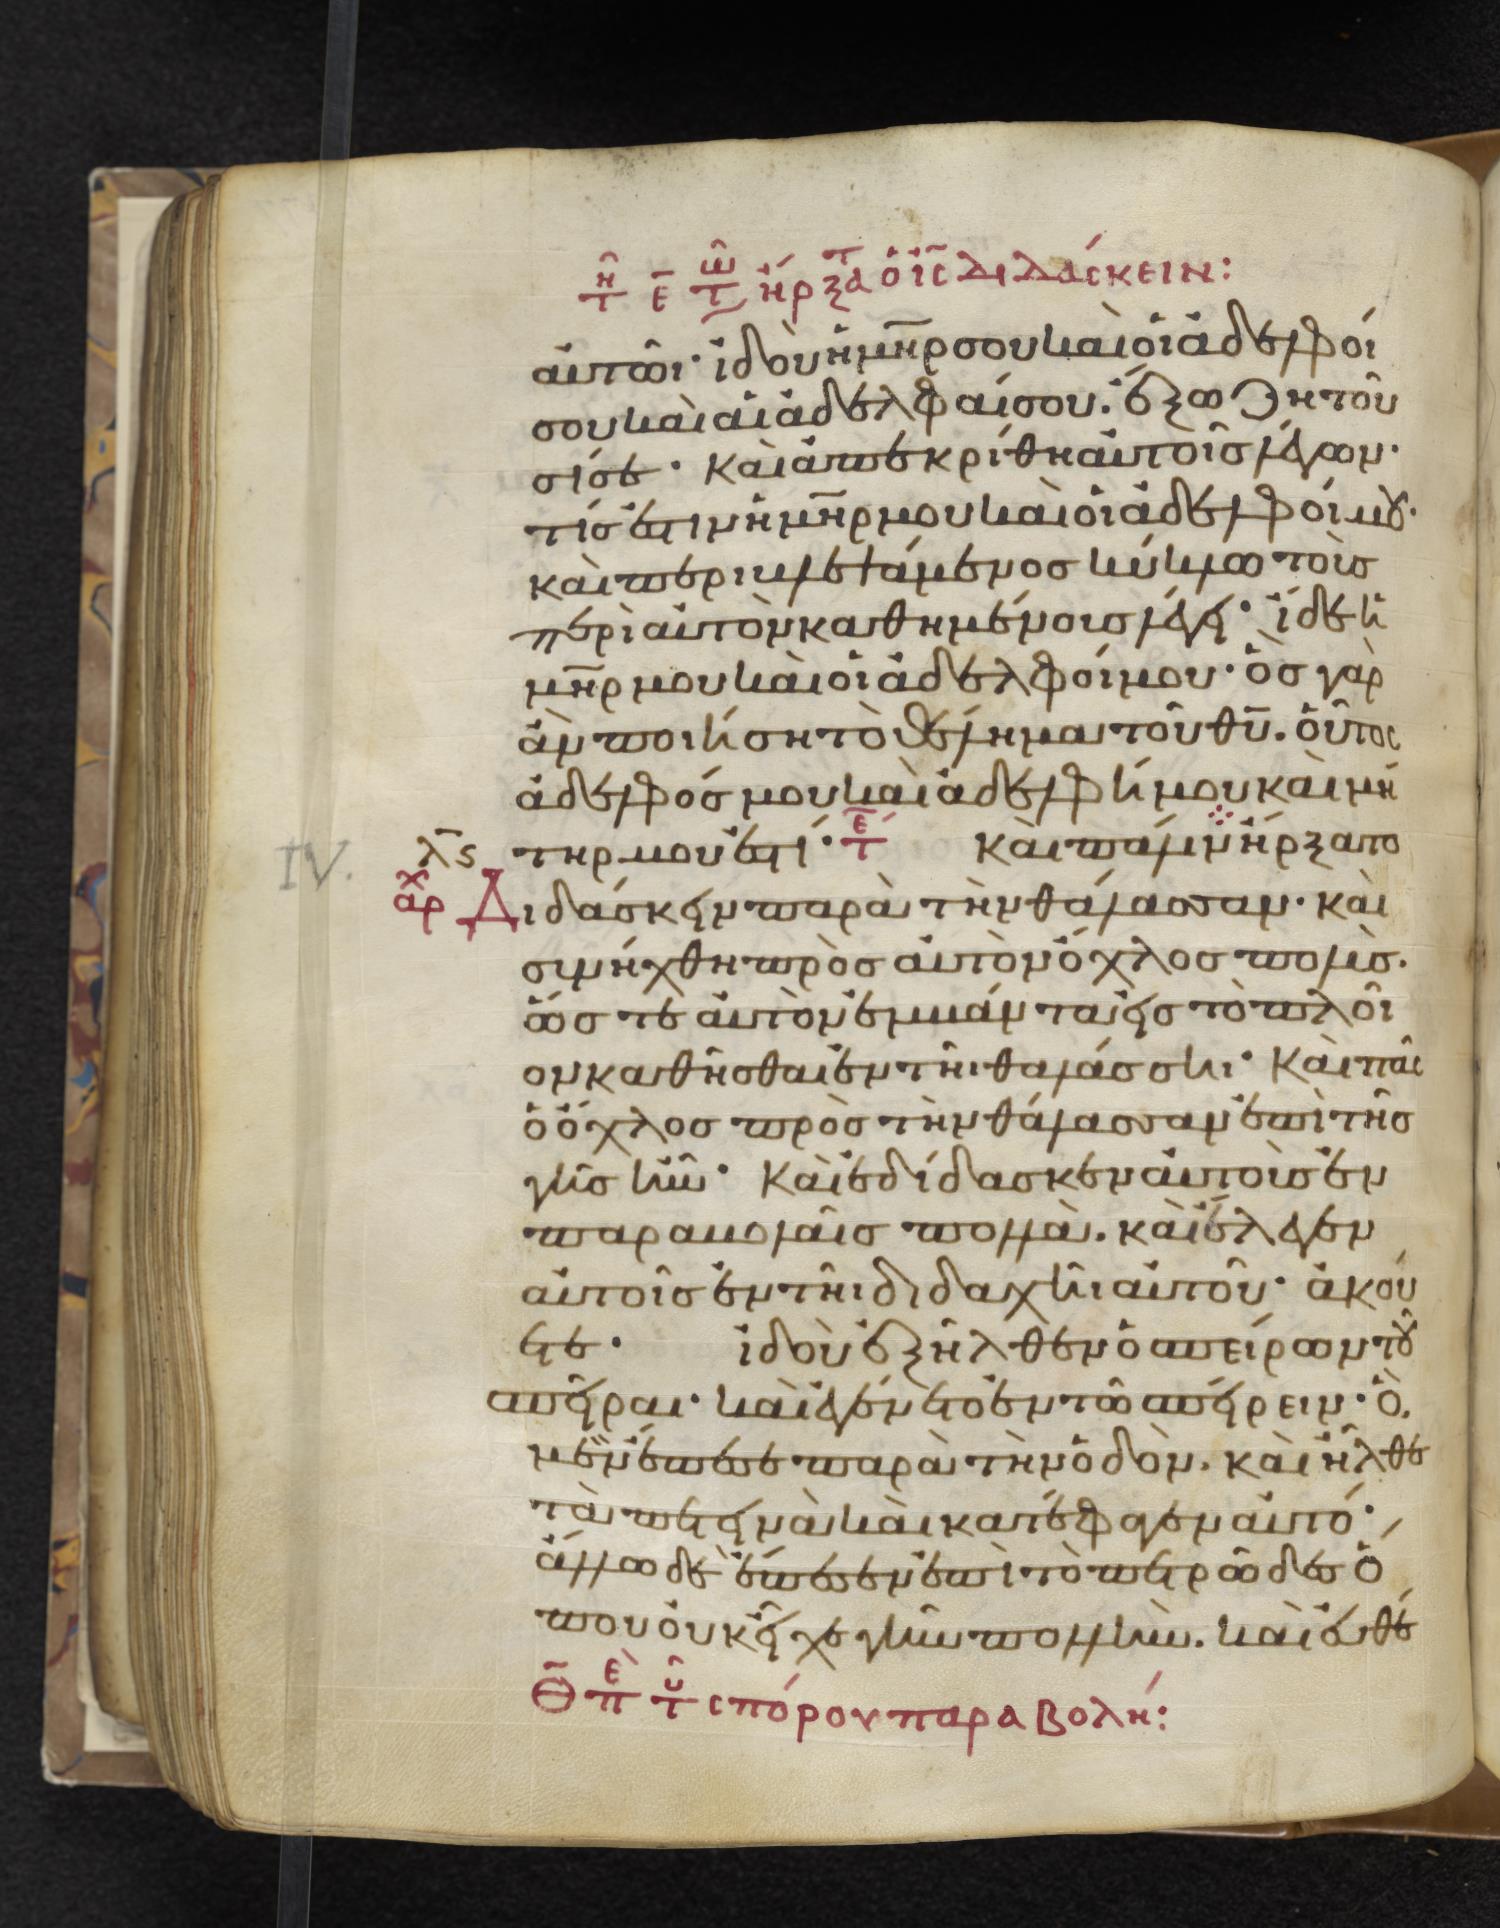 τῇ ε τῷ ἤρξατο ὁ ἰς διδάσκειν:
αὐτῶι· ἰδοὺ ἡ μηρ σου καὶ οἱ ἀδελφοί
σου καὶ αἱ ἀδελφαί σου. ἔξω ζητοῦ
σί σε· Καὶ ἀπεκρίθη αὐτοῖς λέγων·
τίς ἐστιν ἡ μηρ μου καὶ οἱ ἀδελφοί μου·
καὶ περιβλεψάμενος κύκλω τοὺς
περὶ αὐτὸν καθημένους λέγει· ἴδε ἡ
μηρ μου καὶ οἱ ἀδελφοί μου· ὃς γὰρ
ἂν ποιήση τὸ θέλημα τοῦ θυ. οὗτος
ἀδελφός μου καὶ ἀδελφή μου καὶ μή
λς τηρ μου ἐστί· τε Καὶ πάλιν ἤρξατο
IV.
αρχ Διδάσκειν παρὰ τὴν θάλασσαν· καὶ
συνήχθη πρὸς αὐτὸν ὄχλος πολὺς.
ὥστε αὐτὸν ἐμβάντα εἰς τὸ πλοῖ
ον καθῆσθαι ἐν τῆι θαλάσσηι· Καὶ πᾶς
ὁ ὄχλος πρὸς τὴν θάλασσαν ἐπὶ τῆς
γῆς ἦν· Καὶ ἐδίδασκεν αὐτοὺς ἐν
παραβολαῖς πολλὰ. καὶ ἔλεγεν
αὐτοῖς ἐν τῆι διδαχῆι αὐτοῦ· ἀκού
ετε· ἰδοὺ ἐξῆλθεν ὁ σπείρων τοῦ
σπεῖραι· καὶ ἐγένετο ἐν τῶ σπείρειν· ὃ.
μὲν ἔπεσε παρὰ τὴν ὁδὸν. καὶ ἦλθε
τὰ πετεινὰ καὶ κατέφαγεν αὐτό·
ἄλλο δὲ ἔπεσεν ἐπὶ τὸ πετρῶδες ὅ
που οὐκ εἶχε γῆν πολλὴν. καὶ εὐθέ
Θ ἐπ τῦ σπόρου παραβολή: